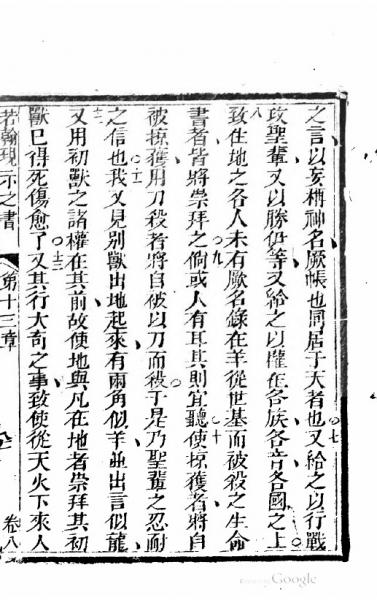 之言以妄褥神名厥帳也同居于天者也又給之以行戰
○七
攻聖輩又以勝伊等又給之以權在各族各音各國之上
八
致住地之各人未有厥名錄在羊從世基而被殺之生命
書者皆將崇拜之倘或人有耳其則宜聽使掠獲者將自
○九
○十
被掠獲用刀殺者將自彼以刀而被殺于是乃聖輩之忍耐
○十一
之信也我又見別獸出地起來有兩角似羊並出言似龍
十二
又用初獸之諸權在其前故使地與凡在地者崇拜其初
獸已得死傷愈了又其行大奇之事致使從天火下來人
○十三
若翰現示之書
第十三章
卷八
Google